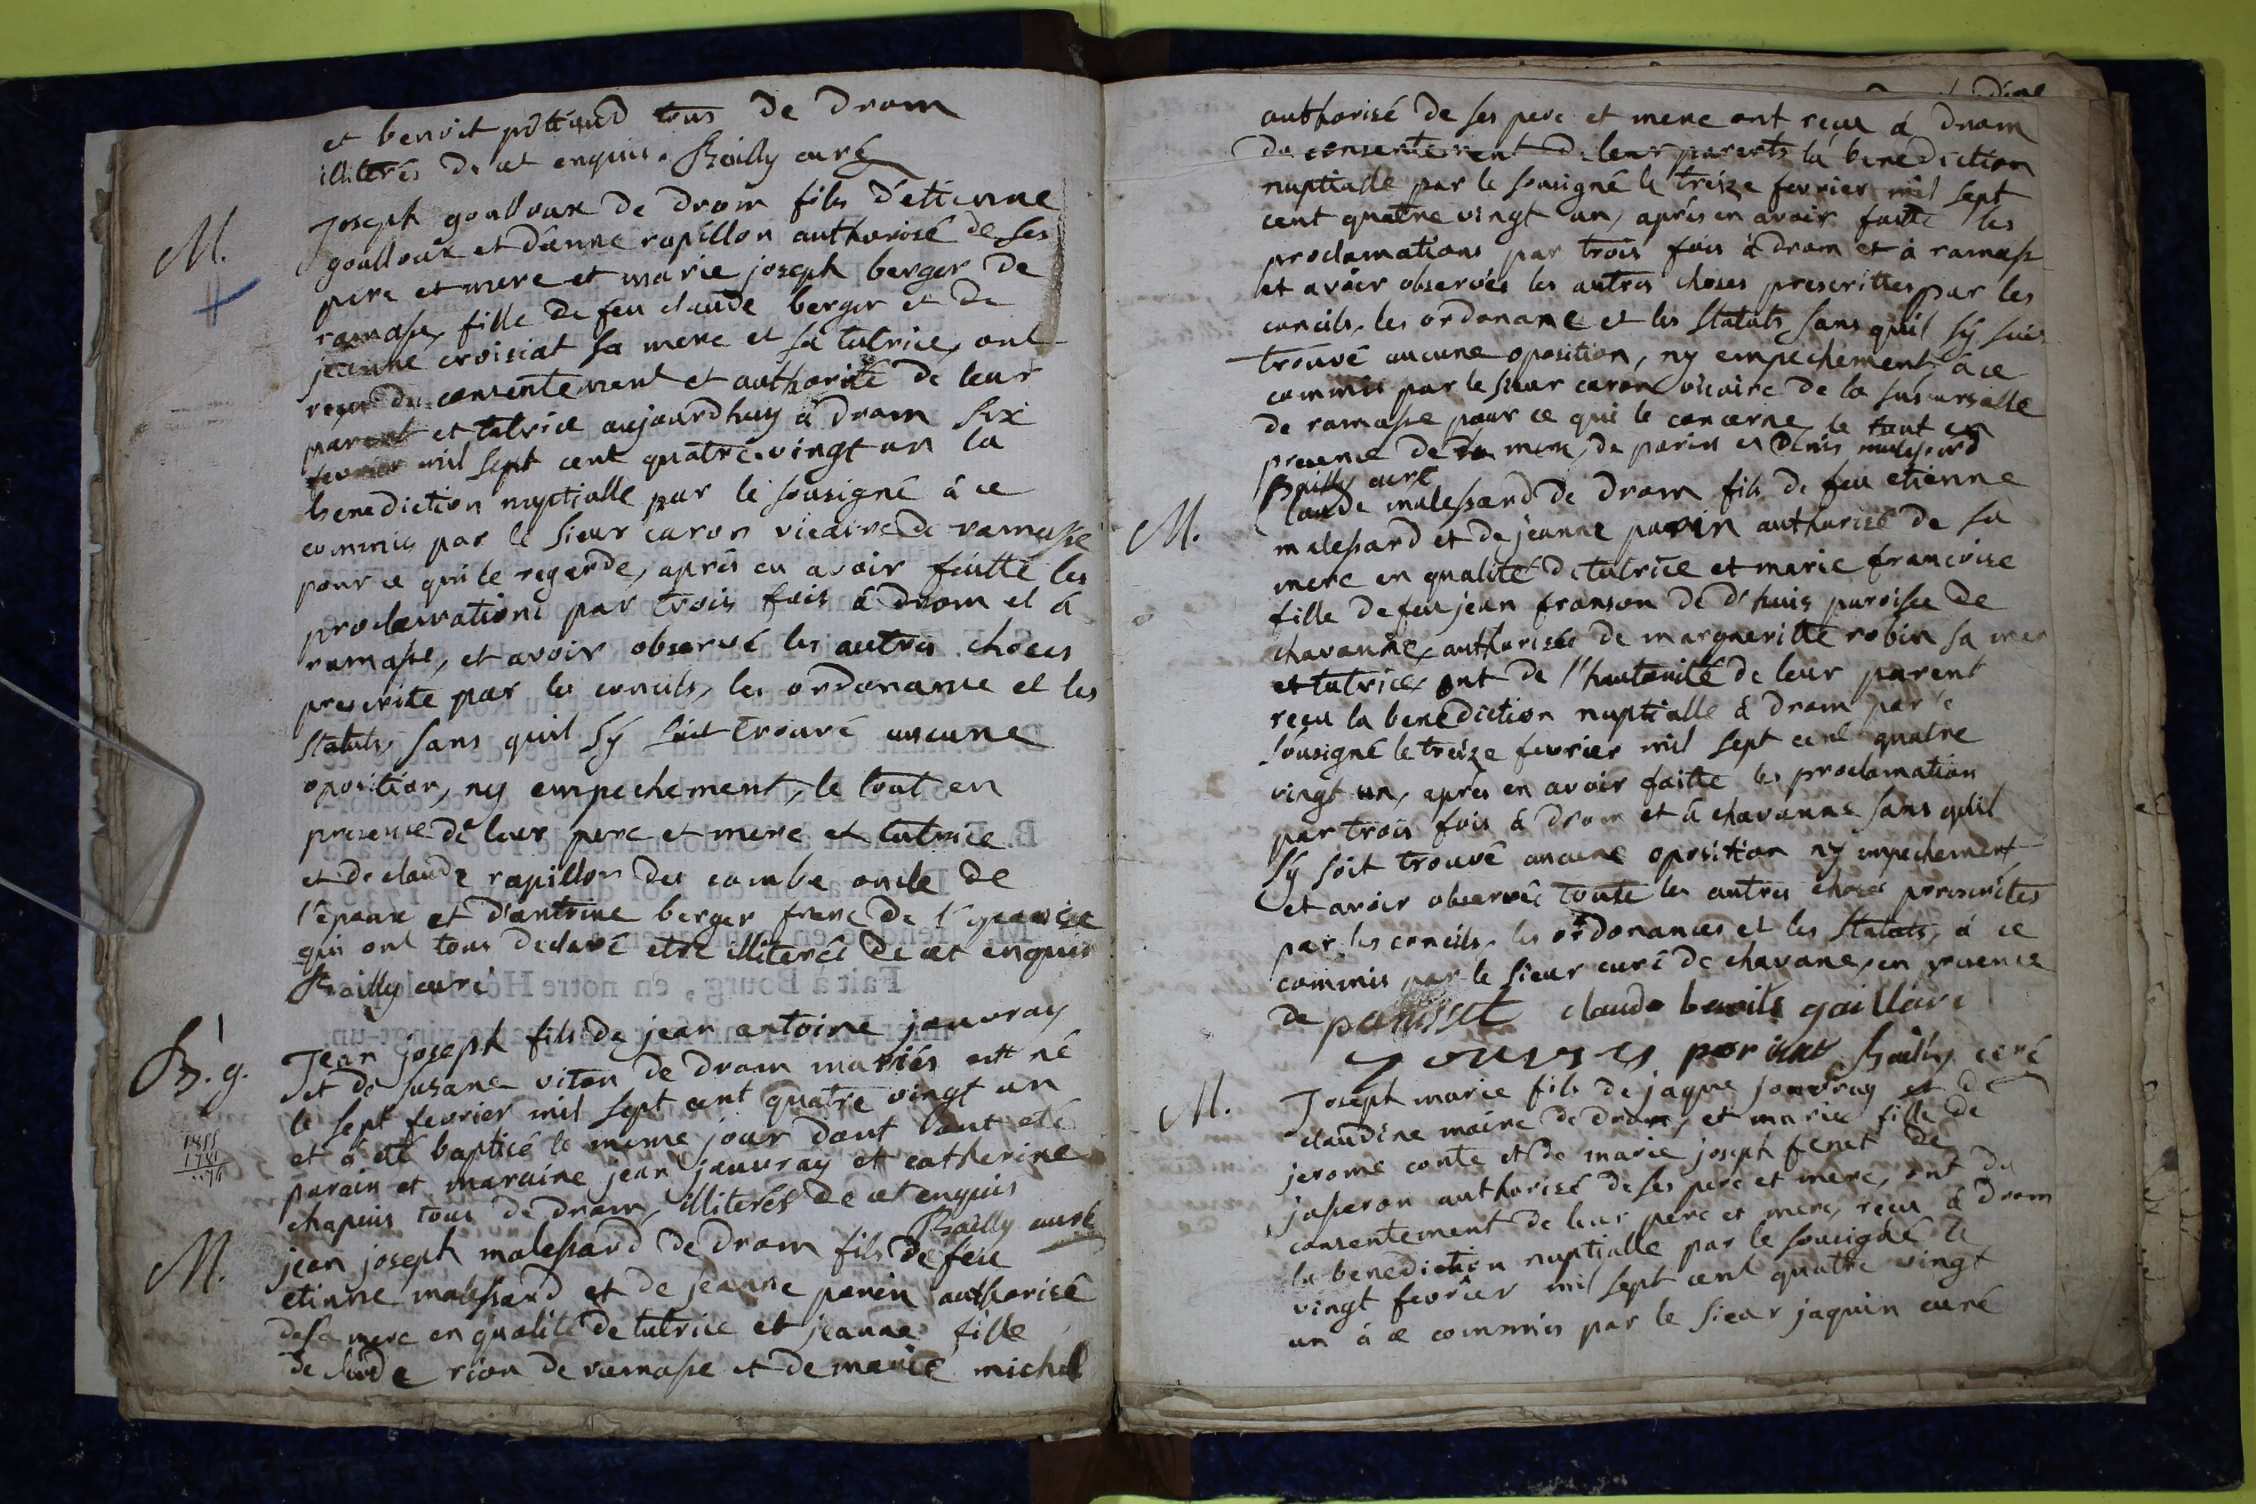 et benoit pittiud tous de drom
illiterés de ce enquis. Bailly curé
M.
Joseph goulloux de drom fils d'etienne
goulloux et d'anne rapillon authorisé de ses
pere et mere et marie joseph berger de
ramasse, fille de feu claude berger et de
jeanne croisiat sa mere et sa tutrice, ont
reçu du consentement et authorité de leur
parent et tutrice aujourdhuy à drom six
fevrier mil sept cent quatre vingt un la
benediction nuptialle par le sousigné à ce
commis par le sieur caron vicaire de ramasse
pour ce qui le regarde, aprés en avoir faitte les
proclamations par trois fois à drom et à
ramasse, et avoir observé les autres choses
prescrite par les concils, les ordonance et les
statuts, sans quil sy soit trouvé aucune
oposition, ny empechement, le tout en
presence de leur pere et mere et tutrice
et de claude rapillon des combe oncle de
l'epoux et d'antoine berger frere de l'epouse
qui ont tous declaré etre illiterés de ce enquis
Bailly curé
B. g.
Jean joseph fils de jean antoine jouvray
et de susane viton de drom mariés est né
le sept fevrier mil sept cent quatre vingt un
et a eté baptisé le meme jour dont l'ont eté
parain et maraine jean jouvray et catherine
chapuis tous de drom, illiterés de ce enquis
Bailly curé
1855
1781
..74
M.
jean joseph malessard de drom fils de feu
etienne malessard et de jeanne parin authorisé
de sa mere en qualité de tutrice et jeanne fille
de claude rion de ramasse et de marie michel
authorisé de ses pere et mere ont reçu à drom
du consentement de leur parents la benediction
nuptialle par le sousigné le treize fevrier mil sept
cent quatre vingt un, aprés en avoir faitte les
proclamations par trois fois à drom et à ramasse
et avoir observés les autres choses prescrittes par les
concils, les ordonance et les statuts, sans quil sy soit
trouvé aucune oposition, ny empechement à ce
commis par le sieur caron vicaire de la sucursalle
de ramasse pour ce qui le concerne, le tout en
presence de sa mere, de parin et denis malessard
Bailly curé
M.
Claude malessard de drom fils de feu etienne
malessard et de jeanne parin authorisé de sa
mere en qualité de tutrice et marie françoise
fille de feu jean franson de d'huis paroisse de
chavanne, authorisée de marguerite robin sa mere
et tutrice, ont de l'hautorité de leur parent
reçu la benediction nuptialle à drom par le
sousigné le treize fevrier mil sept cent quatre
vingt un, aprés en avoir faitte les proclamation
par trois fois à drom et à chavanne sans quil
sy soit trouvé aucune oposition ny empechement
et avoir observé toute les autres choses prescrites
par les concils, les ordonances et les statuts, à ce
commis par le sieur curé de chavane, en presence
de panisset claude benoits gaillard
parisat Bailly curé
M.
Joseph marie fils de jaque jouvray et de
claudine moine de drom, et marie fille de
jerome conte et de marie joseph feret de
jaseron authorisé de ses pere et mere, ont du
consentement de leur pere et mere, reçu à drom
la benediction nuptialle par le sousigné le
vingt fevrier mil sept cent quatre vingt
un à ce commis par le sieur jaquin curé